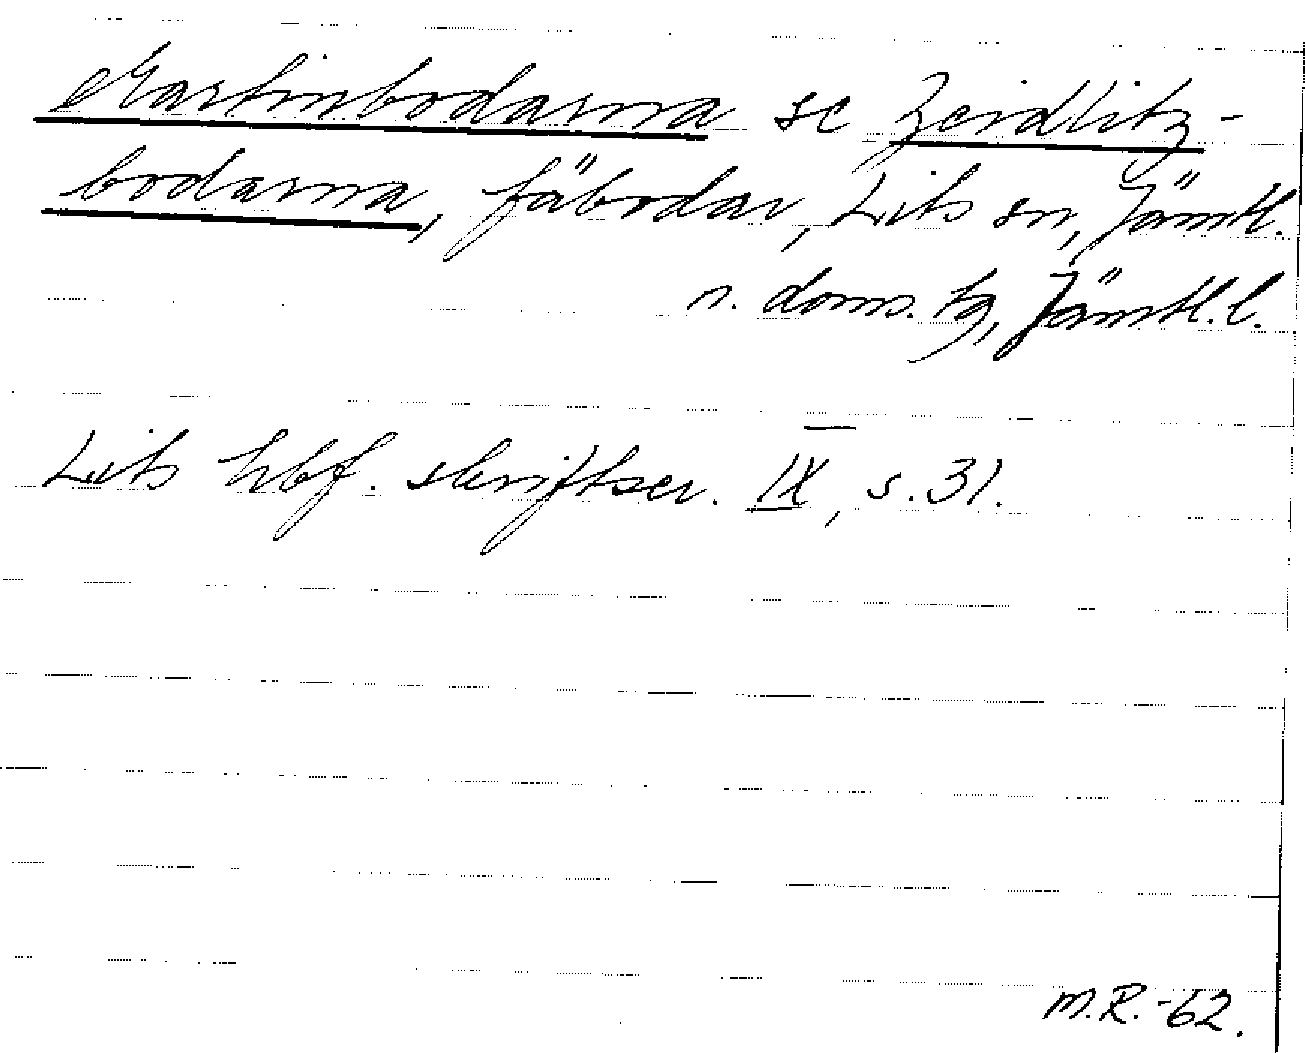 Martinbodarna se Zeidlitz-
bodarna, fäbodar, Lits sn, Jämtl.
n. doms. tg, Jämtl. l.
Lits hbf. skriftser. IX, s. 31.
M.R. -62.